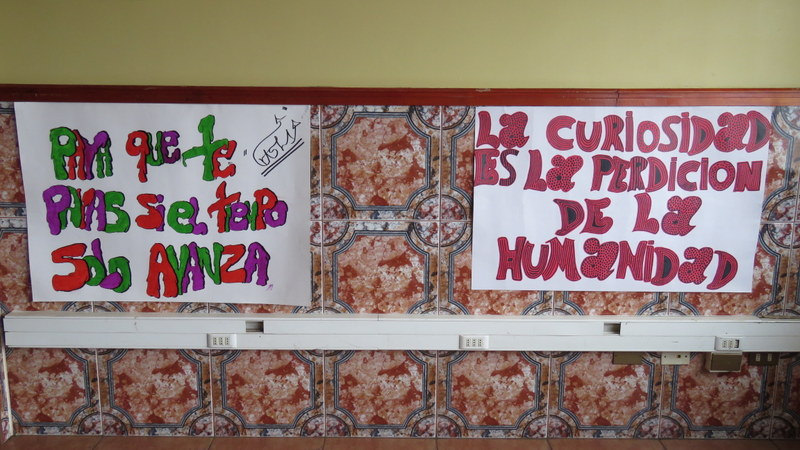 PARA QUE te
PARAS Si eL tiempo
Solo AVANZA
LA CURIOSIDAD
ES LA PERDICION
DE LA
HUMANIDAD